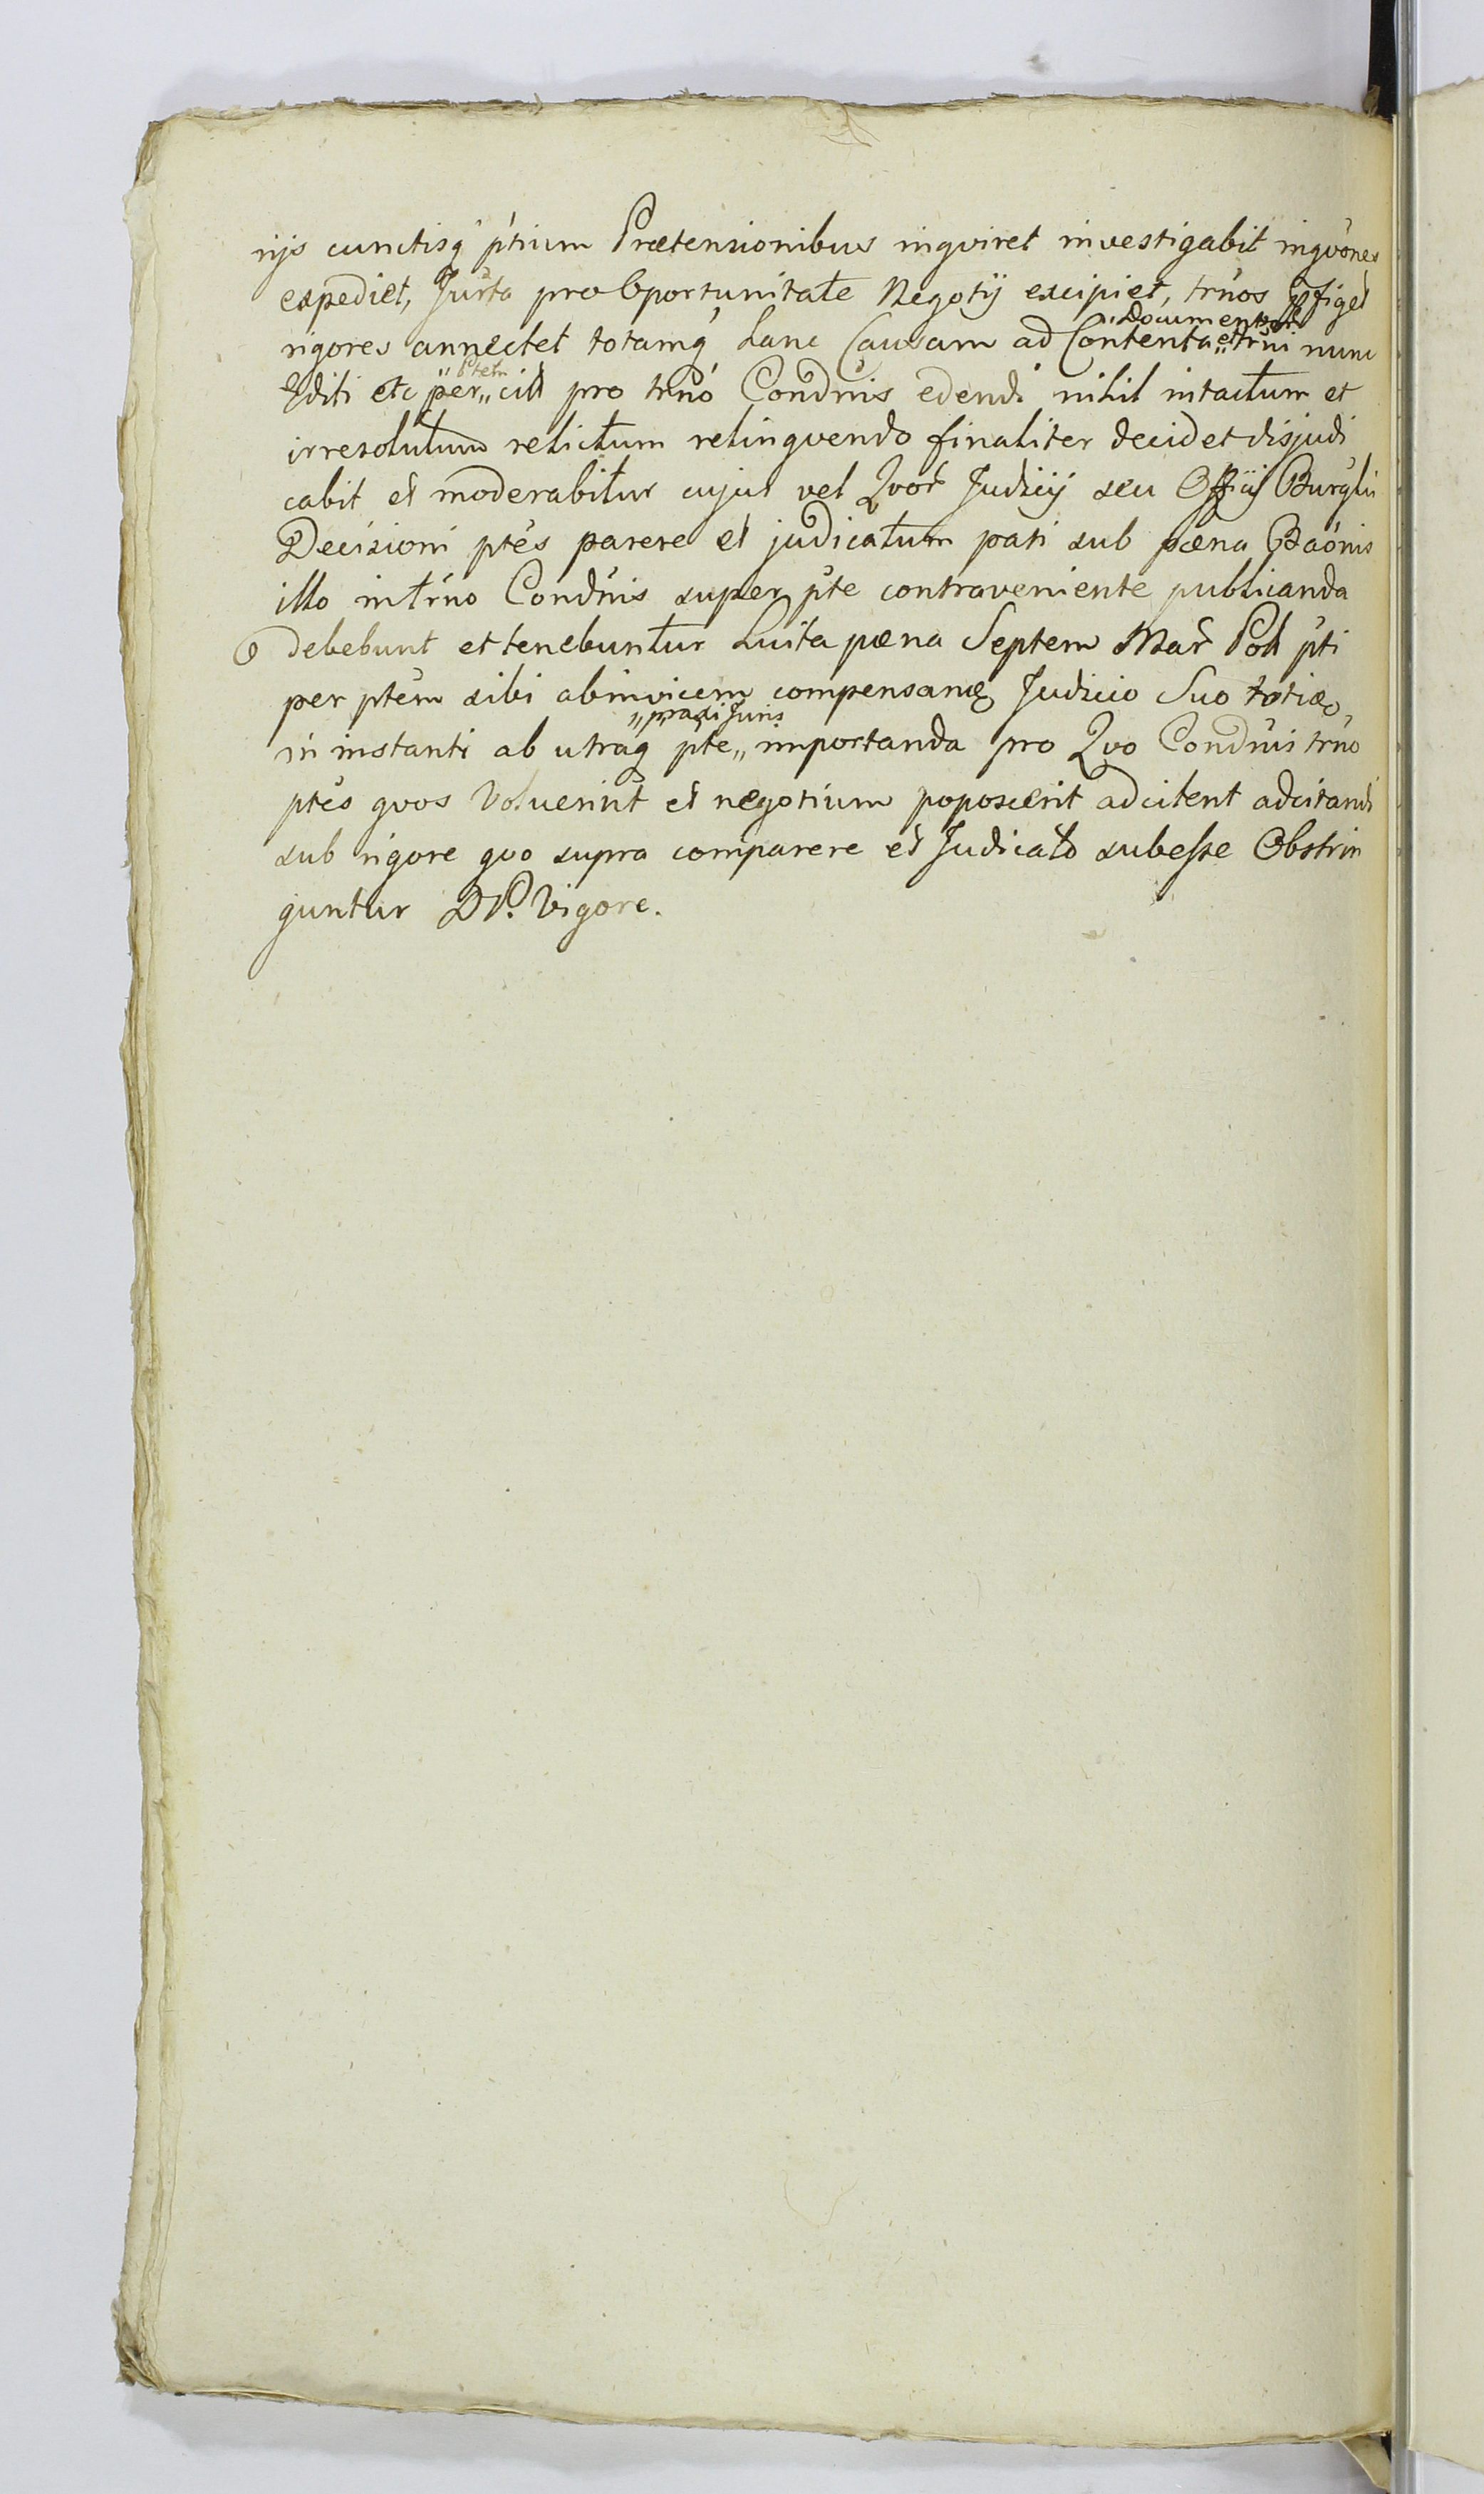 nijs cunctisq́ p̃tium Prætensionibus inqviret investigabit inqvõnes
expediet, Jur̃ta pro Oportunitate Negotij excipiet, tr̃nos p̃figet
rigores annectet totamq́ hanc Causam ad Contenta „Documentor̃ et tr̃ni nunc
Editi etc per „Ptem cit̃ pro tr̃no Condr̃nis edendi nihil intactum et
irresolutum relictum relinqvendo finaliter decidet disjudi
cabit et moderabitur cujus vel Qvor̃ Judicij seu Officij Burg̃lis
Decisioni pt̃es parere et judicatum pati sub pæna Bãonis
illo in tr̃no Condr̃nis super p̃te contraveniente publicanda
debebunt et tenebuntur Luita pæna Septem Mar̃ Pol p̃ti
per pt̃em sibi abinvicem compensanḑ Judicio Suo toties
in instanti ab utraq́ p̃te „praxi Juris importanda pro Qvo Condr̃nis tr̃no
pt̃es qvos Voluerint et negotium poposcerit adcitent adcitandi
sub rigore qvo supra comparere et Judicato subesse Obstrin
guntur D P. Vigore.